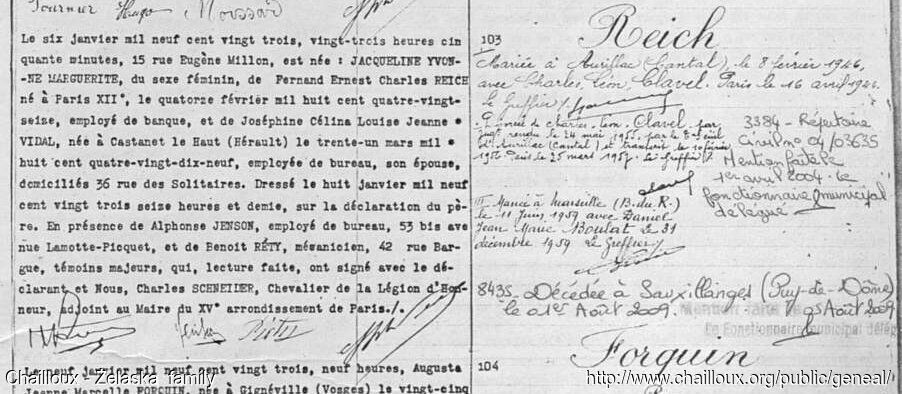 Tournier Hugo Moussard
Le six janvier mil neuf cent vingt trois, vingt-trois heures cin
quante minutes, 15 rue Eugène Millon, est née : JACQUELINE YVON-
-NE MARGUERITE, du sexe féminin, de Fernand Ernest Charles REICH
né à Paris XII°, le quatorze février mil huit cent quatre-vingt-
seize, employé de banque, et de Joséphine Célina Louise Jeanne
VIDAL, née à Castanet le Haut (Hérault) le trente-un mars mil
huit cent quatre-vingt-dix-neuf, employée de bureau, son épouse,
domiciliés 36 rue des Solitaires. Dressé le huit janvier mil neuf
cent vingt trois seize heures et demie, sur la déclaration du pè-
re. En présence de Alphonse JENSON, employé de bureau, 53 bis ave
nue Lamotte-Picquet, et de Benoit RÉTY, mécanicien, 42 rue Bar-
gue, témoins majeurs, qui, lecture faite, ont signé avec le dé-
clarant et Nous, Charles SCHNEIDER, Chevalier de la Légion d'Hon-
neur, adjoint au Maire du XV° arrondissement de Paris./.
Le neuf janvier mil neuf cent vingt trois, neuf heures, Augusta
Jeanne Marcelle FORQUIN, née à Gignéville (Vosges) le vingt-cinq
103
Reich
Mariée à Aurillac (Cantal), le 8 février 1946,
avec Charles, Léon, Clavel. Paris le 16 avril 1946.
le Greffier/.
Divorcée de Charles Léon Clavel par
jugt rendu le 24 mai 1955 par le
d'Aurillac (Cantal) et transcrit le
1956 Paris le 25 mars 1957. Le Greffier
III Mariée à Marseille (B.du.R.)
le 11 Juin 1959 avec Daniel
Jean Marie Boulat le 31
décembre 1959 Le Greffier/
3384 - Répertoire
Civil n° 04/03635
Mention faite le
1er avril 2004. Le
fonctionnaire municipal
délégué
8435 - Décédée à Sauxillanges (Puy-de-Dôme)
le 01er Août 2009. Août 2009
Le Fonctionnaire municipal délégué
104
Forquin
Chailloux - Zelaska family
http://www.chailloux.org/public/geneal/